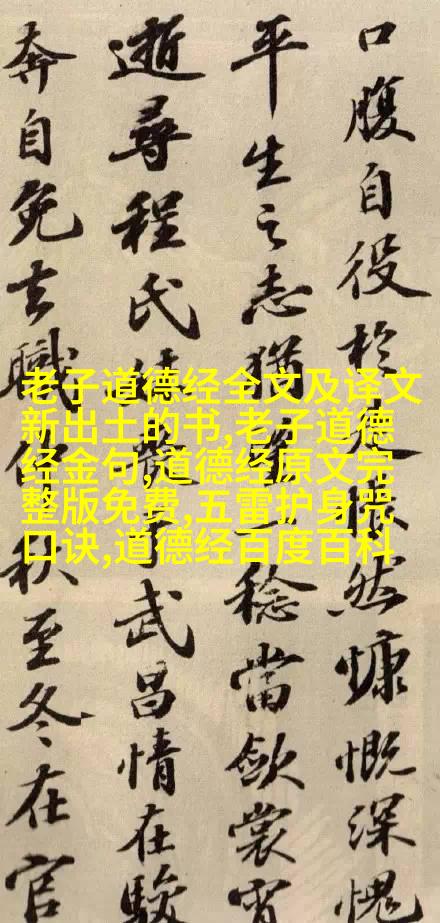 口腹自役於然慷慨深愧
平生之志猶一稔當斂裳宵
逝尋程氏武昌情在駿
奔自免去職秋至冬在官
老子道德经全文及译文
新出土的书,老子道德
经金句,道德经原文完
整版免费,五雷护身咒
口诀,道德经百度百科